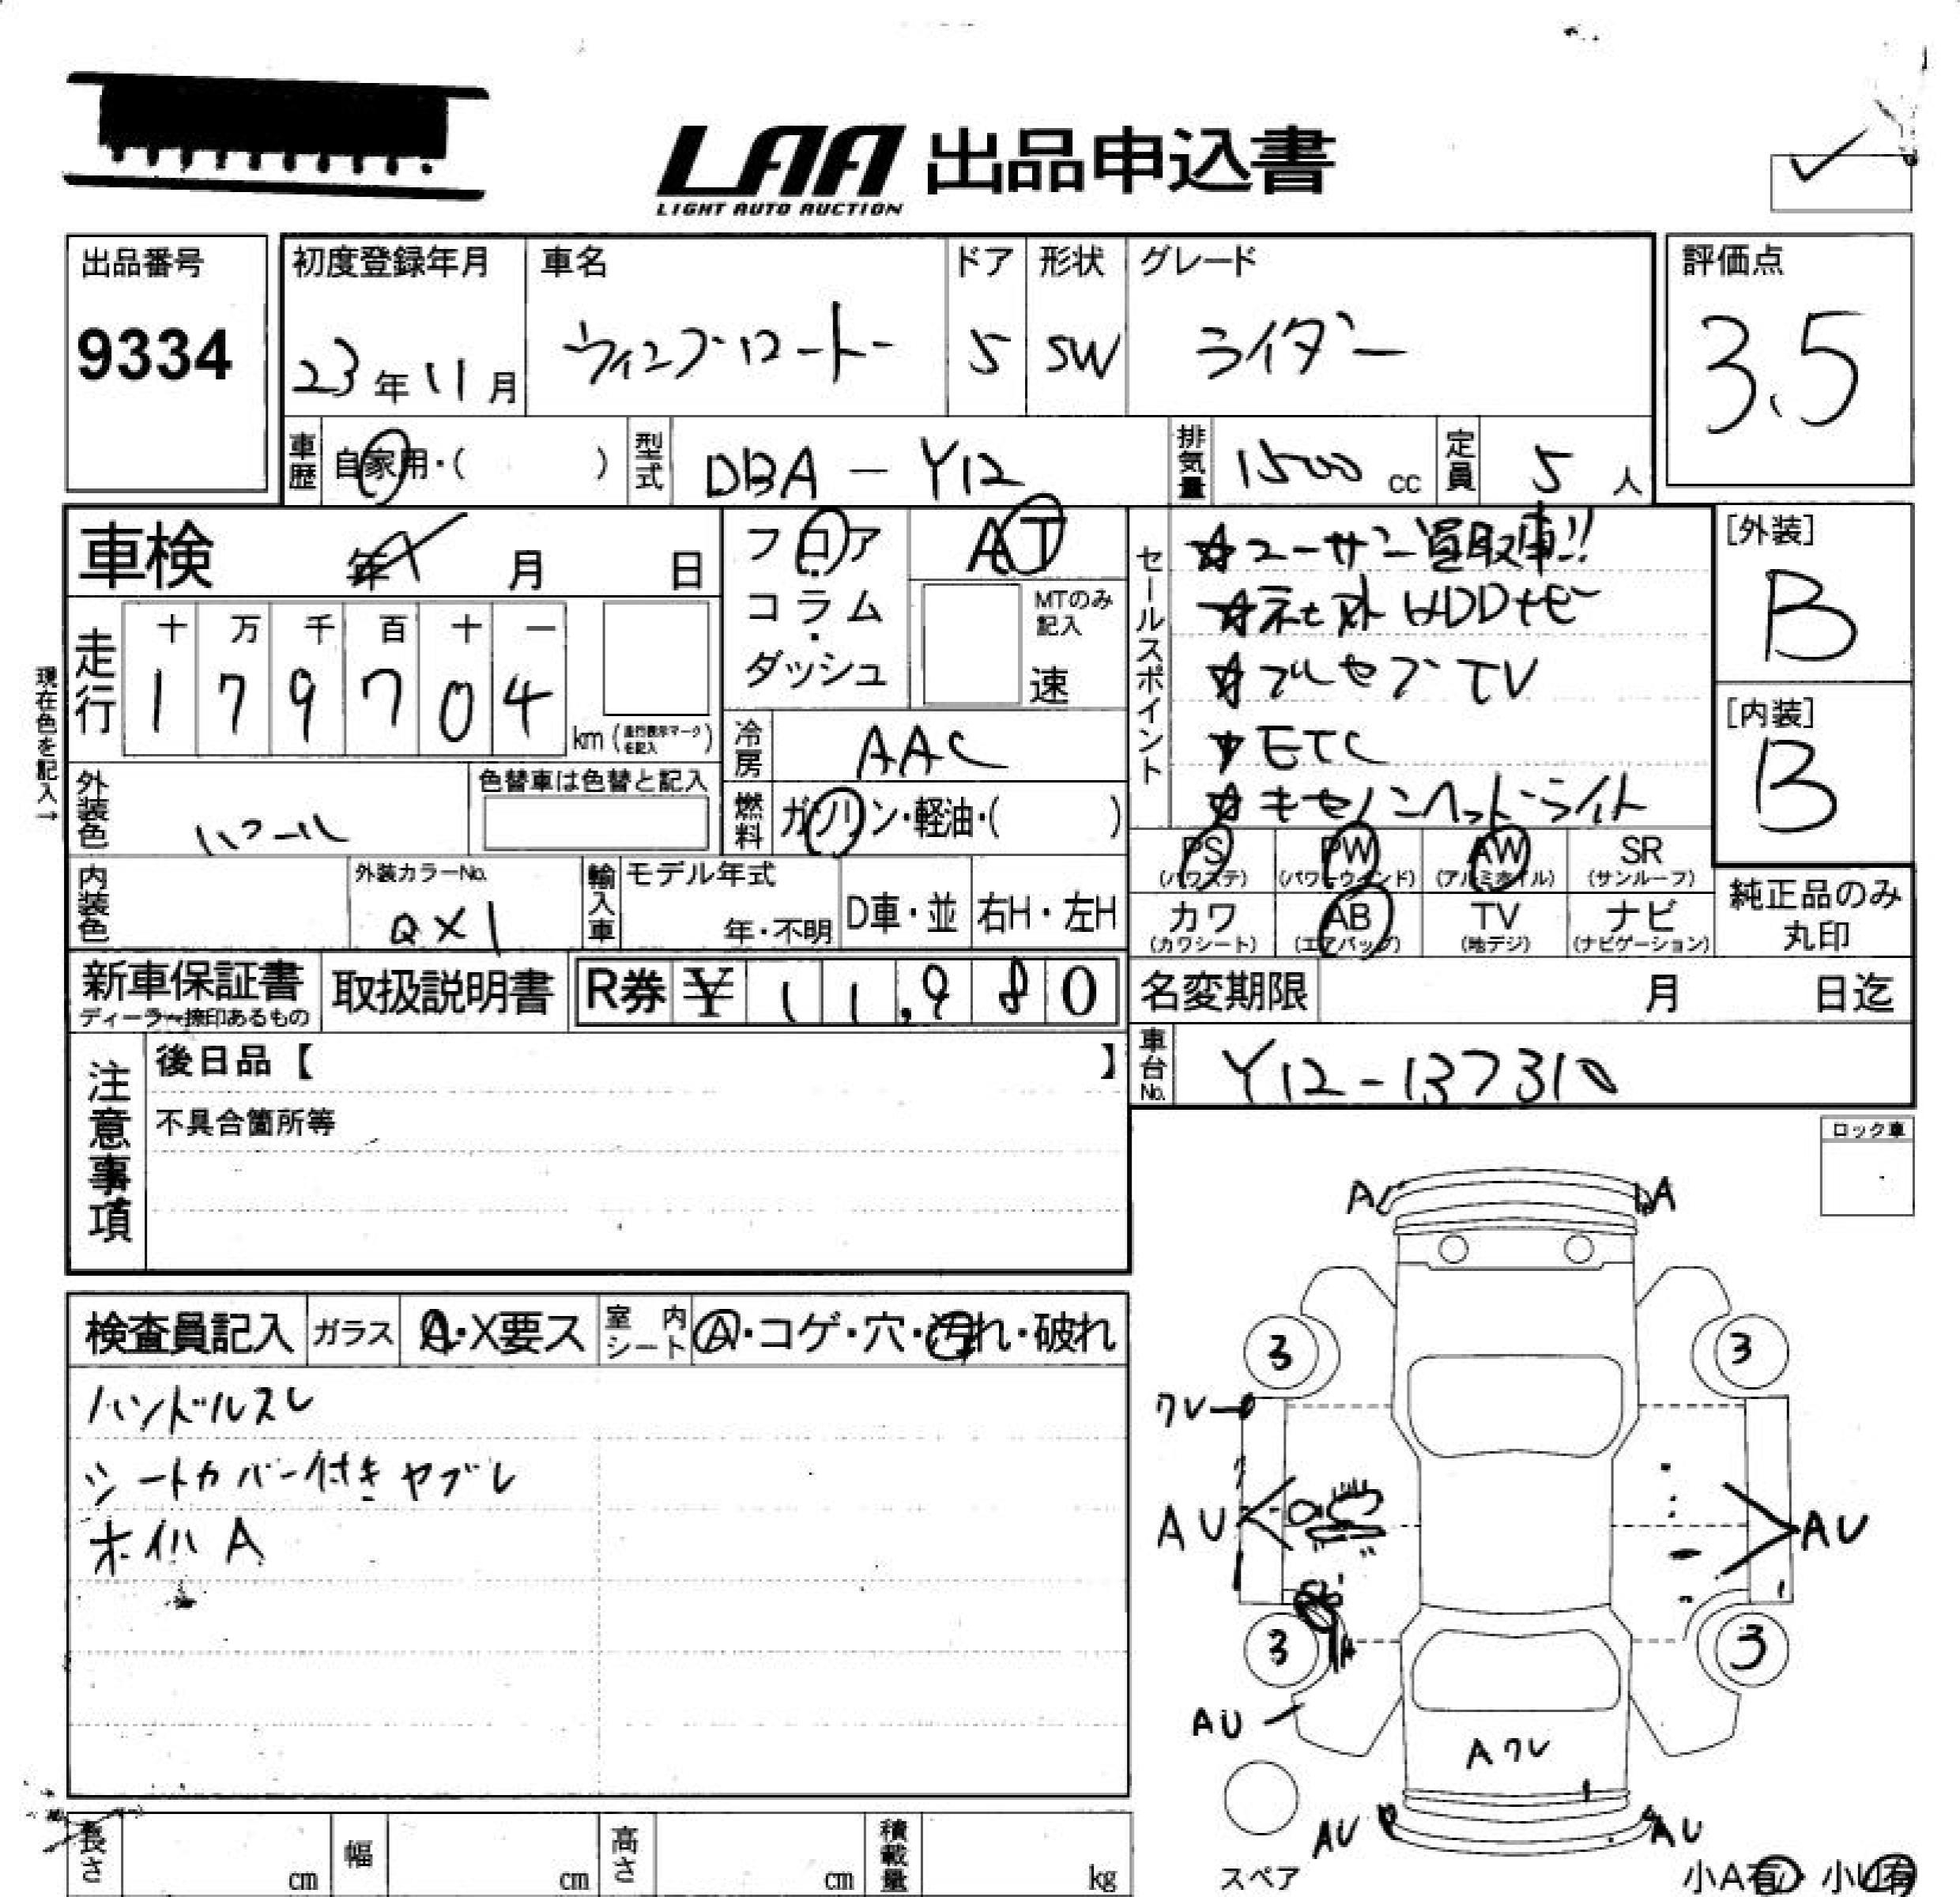 LAA 出品申込書
LIGHT AUTO AUCTION
出品番号
9334
初度登録年月
23年11月
車名
ウイングロード
ドア
5
形状
SW
グレード
ライダー
評価点
3.5
車歴 自家用・( )
型式 DBA-Y12
排気量 1500 cc
定員 5 人
車検 年 月 日
フロア・コラム・ダッシュ
AT
MTのみ記入
速
セールスポイント
☆ユーザー買取車!!
☆社外HDDナビ
☆フルセグTV
☆ETC
☆キセノンヘッドライト
[外装]
B
[内装]
B
現在色を記入→
走行
十 万 千 百 十 一
1 7 9 7 0 4
km (走行表示マークを記入)
冷房 AAC
外装色 パール
色替車は色替と記入
燃料 ガソリン・軽油・( )
PS (パワステ)
PW (パワーウインド)
AW (アルミホイル)
SR (サンルーフ)
内装色
外装カラーNo.
QX1
輸入車
モデル年式
年・不明
D車・並
右H・左H
カワ (カワシート)
AB (エアバッグ)
TV (地デジ)
ナビ (ナビゲーション)
純正品のみ丸印
新車保証書
ディーラー捺印あるもの
取扱説明書
R券 ¥ 11,980
名変期限 月 日迄
注意事項
後日品【 】
不具合箇所等
車台No. Y12-137310
ロック車
検査員記入
ガラス A・X要ス
室内シート A・コゲ・穴・汚れ・破れ
ハンドルスレ
シートカバー付き ヤブレ
ホイルA
A
A
3
3
ワレ
AU
AU
3
3
AU
Aワレ
AU
AU
スペア
小A有・小U有
長さ cm
幅 cm
高さ cm
積載量 kg